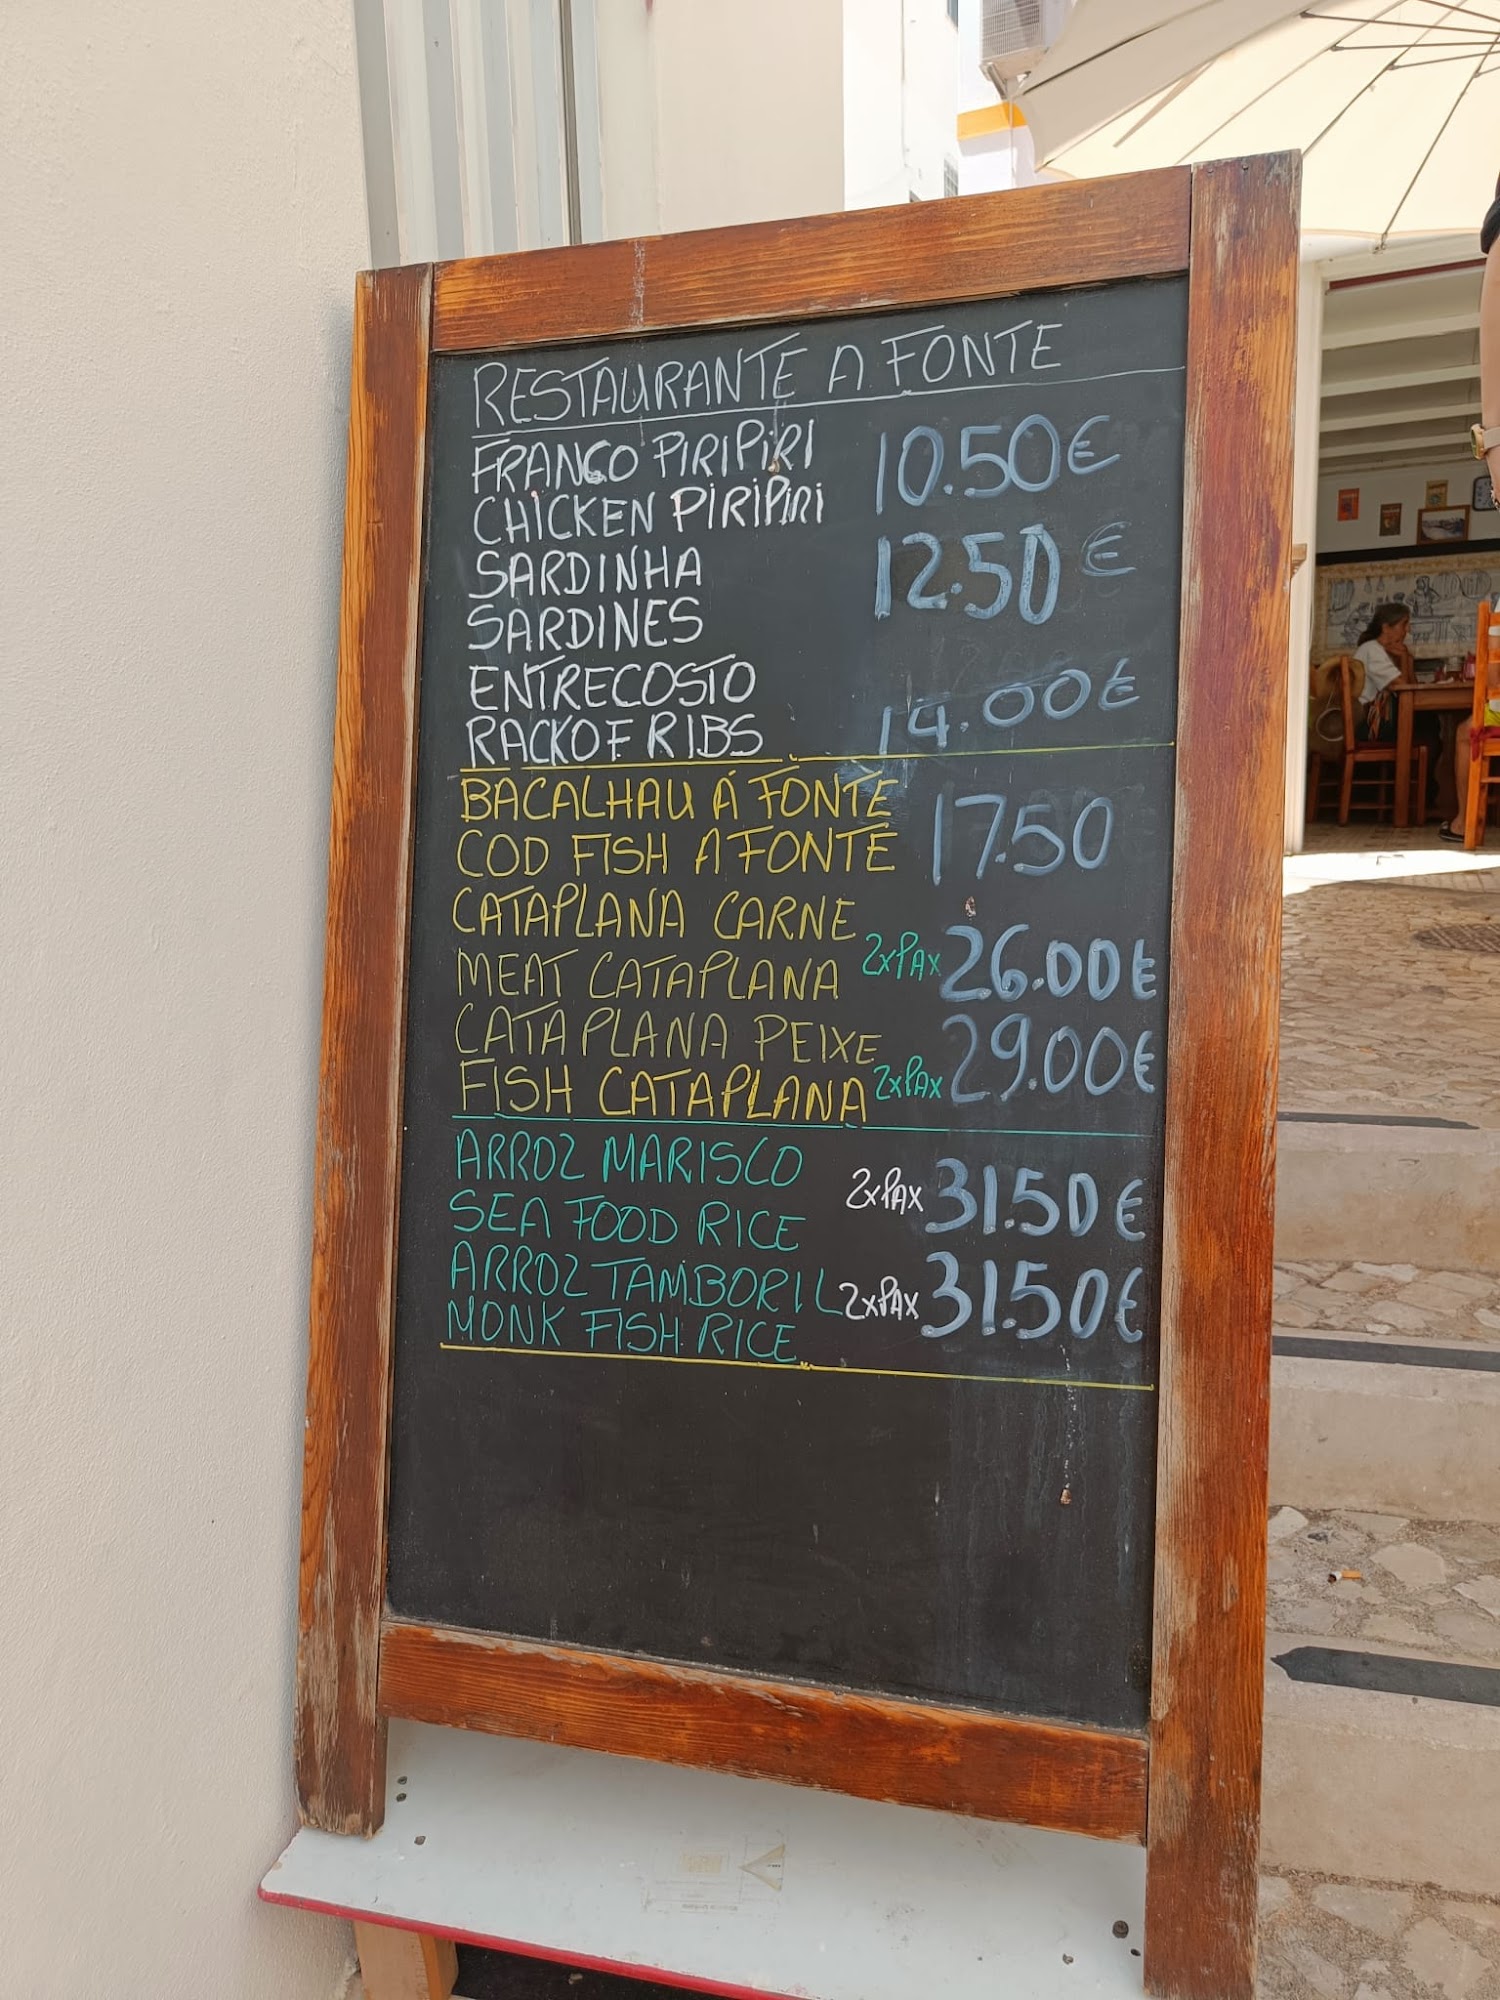 RESTAURANTE A FONTE
FRANGO PIRIPIRI 10.50€
CHICKEN PIRIPIRI
SARDINHA 12.50€
SARDINES
ENTRECOSTO 14.00€
RACK OF RIBS
BACALHAU Á FONTE 17.50
COD FISH A FONTE
CATAPLANA CARNE
MEAT CATAPLANA 2xPAX 26.00€
CATAPLANA PEIXE
FISH CATAPLANA 2xPAX 29.00€
ARROZ MARISCO 2xPAX 31.50€
SEA FOOD RICE
ARROZ TAMBORIL 2xPAX 31.50€
MONK FISH RICE